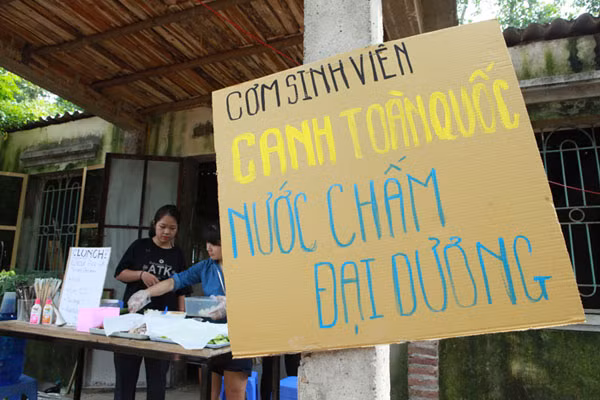 CƠM SINH VIÊN
CANH TOÀN QUỐC
NƯỚC CHẤM
ĐẠI DƯƠNG
LUNCH